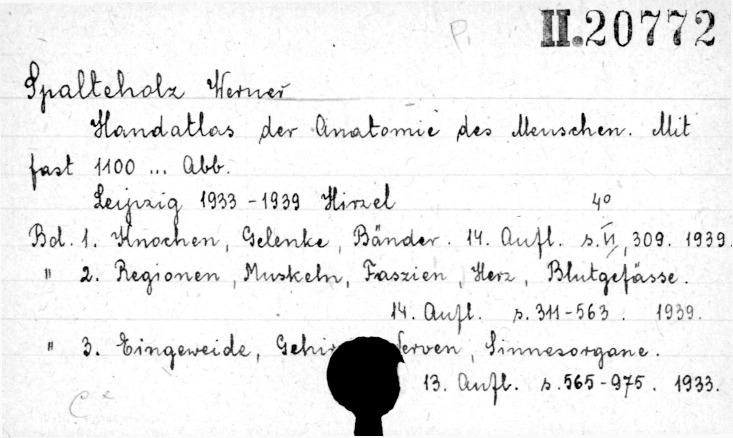 P.
II.20772
Spalteholz Werner
Handatlas der Anatomie des Menschen. Mit
fast 1100 ... Abb.
Leipzig 1933-1939 Hirzel 4°
Bd. 1. Knochen, Gelenke, Bänder. 14. Aufl. s. VI, 309. 1939.
" 2. Regionen, Muskeln, Faszien, Herz, Blutgefässe.
14. Aufl. s. 311-563. 1939.
" 3. Eingeweide, Nerven, Sinnesorgane.
13. Aufl. s. 565-975. 1933.